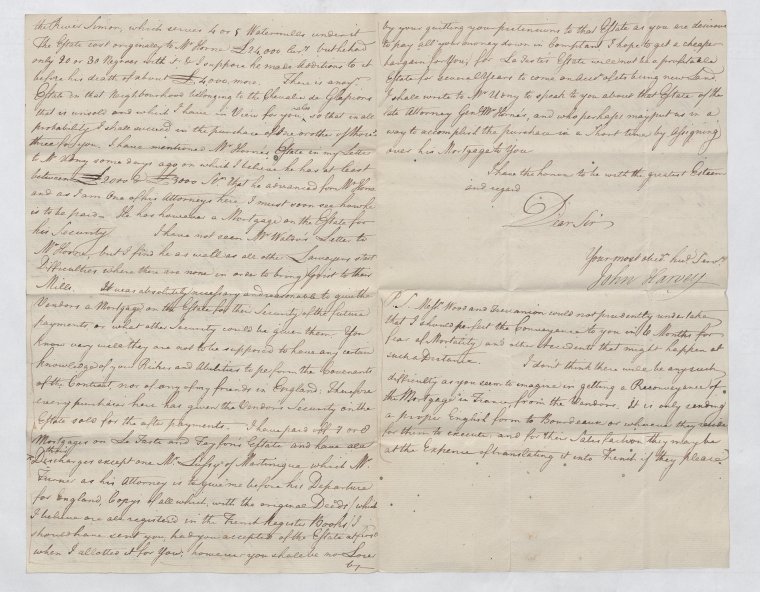 the River Simon, which serves 4 or 5 Watermills under it
The Estate cost originally to Mr Horne £24,000 Curr.y but he had
only 20 or 30 Negroes with it & I suppose he made Additions to it
before his death of about £4,000 more. There is a nay
Estate in that Neighbourhood belonging to the Chevalier de Glapions
that is unsold and which I have in View for you also so that in all
probability I shall succeed in the purchase of One or other of those
three for you. I have mentioned Mr Horne's Estate in my Letter
to Mr Udny some days ago on which I believe he has at least
between £2000 & £3000 St. that he advanced for Mr Horne
and as I am One of his Attorneys here I must soon see how he
is to be paid. He has however a Mortgage on the Estate for
his Security. I have not seen Mr Watson's Letter to
Mr Horne, but I find he as well as all other Lawyers start
Difficulties where there are none in order to bring Grist to their
Mills. It was absolutely necessary and reasonable to give the
Vendors a Mortgage on the Estate for their Security of the future
payments or what other Security could be given them. You
know very well they are not to be supposed to have any certain
knowledge of your Riches and Abilities to perform the Covenants
of the Contract nor of any of my friends in England: Therefore
every purchaser here has given the Vendors Security on the
Estate sold for the after payments. I have paid off 7 or 8
Mortgages on La Taste and Faysson's Estate and have all
their Discharges except one Mr. of Martinique which Mr.
Turner as his Attorney is to give me before his Departure
for England, Copys of all which, with the original Deeds (which
I believe are all registered in the French Register Books) I
should have sent you, had you accepted of the Estate at first
when I allotted it for You; however you shall be no Loser
by
by your quitting your pretensions to that Estate as you are desirous
to pay all your money down in Compliant I hope to get a cheaper
bargain for you; for La Taste's Estate will not be a profitable
Estate for several Years to come on acct of its being new Land,
I shall write to Mr Udny to speak to you about that Estate of the
late Attorney Genl Mr Horne's, and who perhaps may put us in a
way to accomplish the purchase in a short time by assigning
over his Mortgage to You.
I have the honor to be with the greatest Esteem
and regard
Dear Sir
Your most obedt. hue. Servt.
John Harvey
P.S. Messrs Wood and Trevanion could not prudently undertake
that I should perfect the Conveyance to you in 6 Months for
fear of Mortality and other Accidents that might happen at
such a Distance. I don't think there will be any such
difficulty as you seem to imagine in getting a Reconveyance of
the Mortgage in France from the Vendors. It is only sending
a proper English form to Bourdeaux or wherever they reside
for them to execute, and for their Satisfaction they may be
at the Expence of translating it into French if they please